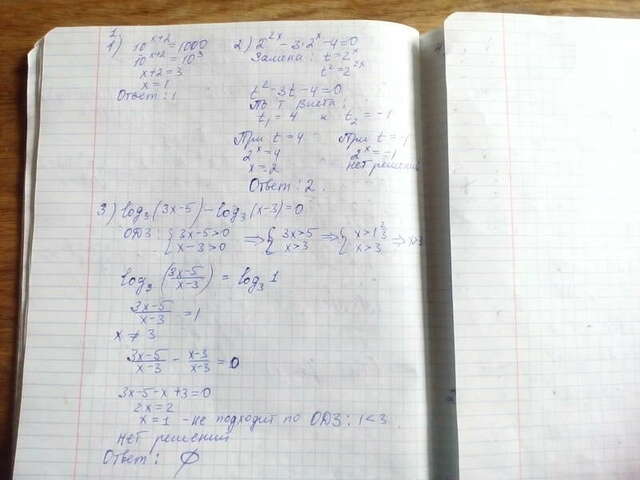 1
1) 10^(x+2) = 1000
10^(x+2) = 10^3
x+2 = 3
x = 1
Ответ: 1
2) 2^(2x) - 3·2^x - 4 = 0
Замена: t = 2^x
t^2 = 2^(2x)
t^2 - 3t - 4 = 0
По т. Виета:
t₁ = 4 и t₂ = -1
При t = 4
2^x = 4
x = 2
При t = -1
2^x = -1
нет решений
Ответ: 2.
3) log₃(3x-5) - log₃(x-3) = 0
ОДЗ: { 3x-5>0 x-3>0 ⇒ { 3x>5 x>3 ⇒ { x>1 2/3 x>3 ⇒ x>3
log₃((3x-5)/(x-3)) = log₃1
(3x-5)/(x-3) = 1
x ≠ 3
(3x-5)/(x-3) - (x-3)/(x-3) = 0
3x-5-x+3=0
2x=2
x = 1 - не подходит по ОДЗ: 1<3
нет решений
Ответ: ∅